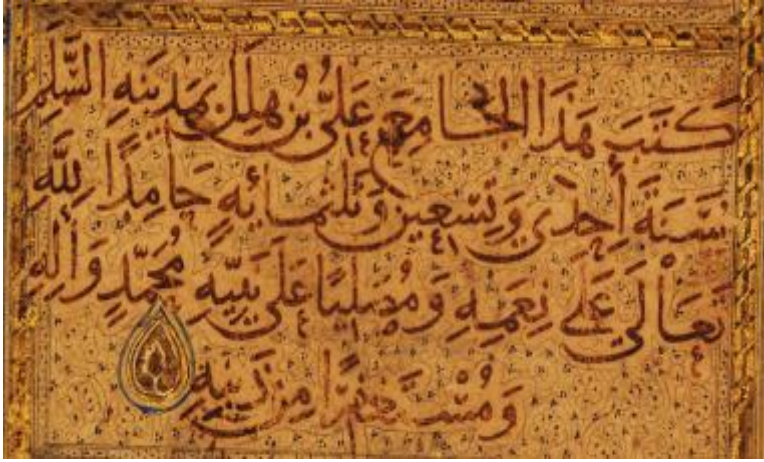 كَتَبَ هَذَا الجَامِعَ عَلِيُّ بْنُ هِلَلٍ بِمَدِينَةِ السَّلَمِ
سَنَةَ أَحِدَي وَتِسْعِينَ وَثَلثمائهِ حَامِدًا لِلَّهِ
تَعَالَى عَلَى نِعَمِهِ وَمُصَلِيًا عَلَى نَبِيِّهِ مُحَمَّدٍ وَآلِهِ
وَمُسْتَغْفِرًا مِن ذَنبِهِ